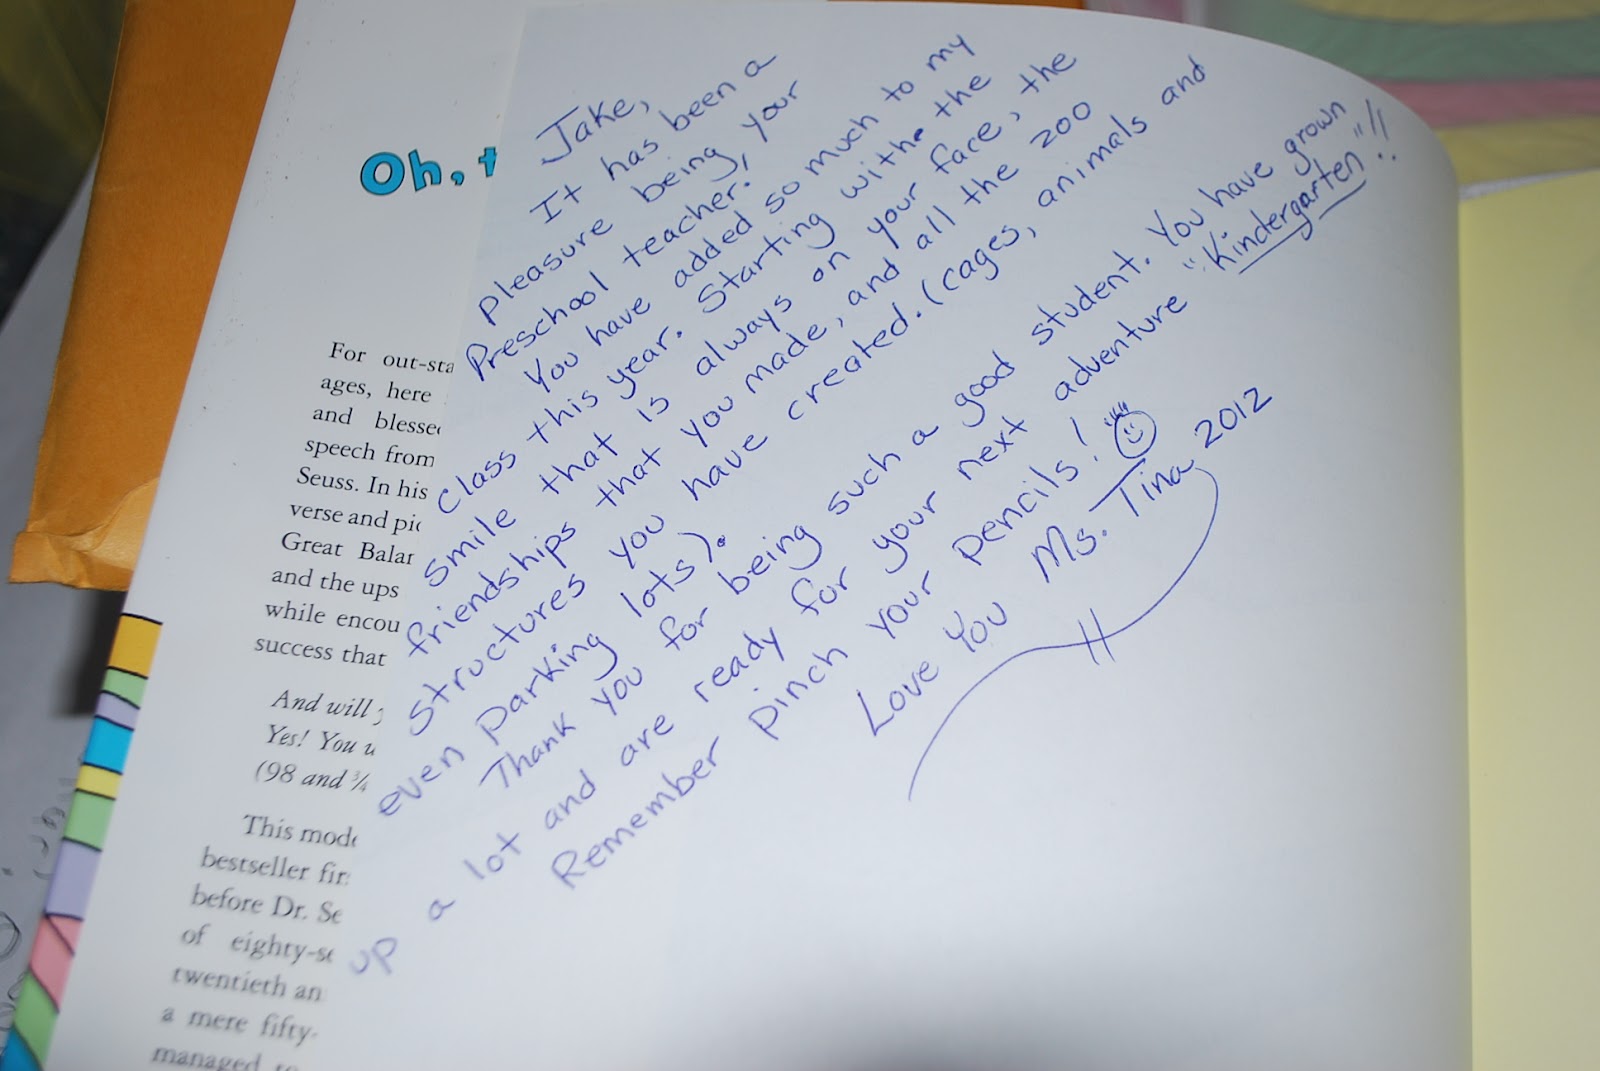 Oh, t
For out-sta
ages, here
and blessed
speech from
Seuss. In his
verse and pic
Great Balan
and the ups
while encou
success that
And will y
Yes! You u
(98 and ¾
This mode
bestseller fir
before Dr. Se
of eighty-se
twentieth an
a mere fifty-
managed to
Jake,
It has been a
pleasure being, your
Preschool teacher.
You have added so much to my
class this year. Starting withe the
smile that is always on your face, the
friendships that you made, and all the zoo
structures you have created. (cages, animals and
even parking lots).
Thank you for being such a good student. You have grown
up a lot and are ready for your next adventure "Kindergarten"!!
Remember pinch your pencils!
Love You Ms. Tina 2012